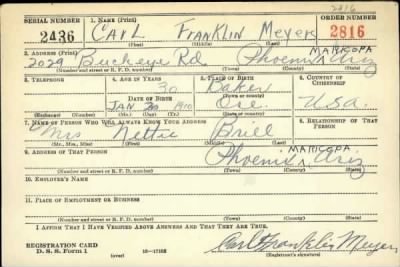 2816
SERIAL NUMBER 1. NAME (Print) ORDER NUMBER
2436 CARL FRANKLIN MEYER 2816
(First) (Middle) (Last)
2. ADDRESS (Print) MARICOPA
2029 Buckeye Rd. Phoenix Ariz
(Number and street or R. F. D. number) (Town) (County) (State)
3. TELEPHONE 4. AGE IN YEARS 5. PLACE OF BIRTH 6. COUNTRY OF CITIZENSHIP
30 Baker
DATE OF BIRTH (Town or county)
JAN 1910 Ore. U.S.a.
(Exchange) (Number) (Mo.) (Day) (Yr.) (State or country)
7. NAME OF PERSON WHO WILL ALWAYS KNOW YOUR ADDRESS 8. RELATIONSHIP OF THAT PERSON
Mrs Nettie Brill
(Mr., Mrs., Miss) (First) (Middle) (Last)
9. ADDRESS OF THAT PERSON MARICOPA
Phoenix Ariz
(Number and street or R. F. D. number) (Town) (County) (State)
10. EMPLOYER'S NAME
11. PLACE OF EMPLOYMENT OR BUSINESS
(Number and street or R. F. D. number) (Town) (County) (State)
I AFFIRM THAT I HAVE VERIFIED ABOVE ANSWERS AND THAT THEY ARE TRUE.
REGISTRATION CARD
D. S. S. Form 1 Carl Franklin Meyer
(over) (Registrant's signature)